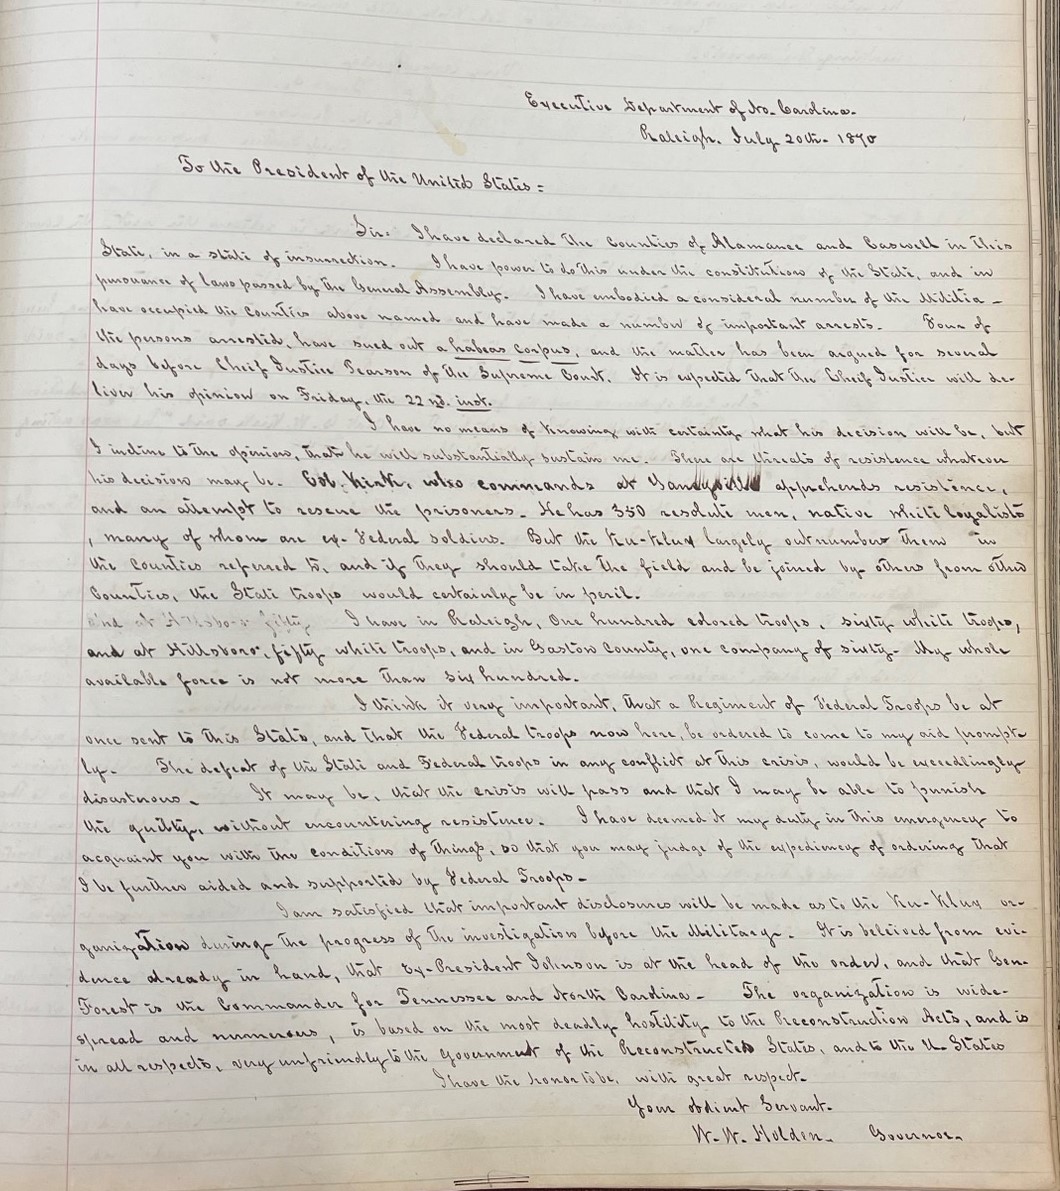 Executive Department of No. Carolina.
Raleigh. July 20th. 1870
To the President of the United States =
Sir. I have declared the Counties of Alamance and Caswell in this
State, in a state of insurrection. I have power to do this under the constitution of the State, and in
pursuance of laws passed by the General Assembly. I have embodied a consideral number of the Militia –
have occupied the Counties above named and have made a number of important arrests. Four of
the persons arrested, have sued out a habeas corpus, and the matter has been argued for several
days before Cheif Justice Pearson of the Supreme Court. It is expected that the Cheif Justice will de-
liver his opinion on Friday, the 22nd. inst.
I have no means of knowing with certainty what his decision will be, but
I incline to the opinion, that he will substantially sustain me. There are threats of resistence whatever
his decision may be. Col. Kirk, who commands at apprehends resistence,
and an attempt to rescue the prisoners. He has 350 resolute men, native white loyalists
, many of whom are ex-Federal soldiers. But the Ku-Klux largely outnumber them in
the Counties referred to, and if they should take the field and be joined by others from other
Counties, the State troops would certainly be in peril.
and at Hillsboro fifty I have in Raleigh, One hundred colored troops, sixty white troops,
and at Hillsboro. fifty white troops, and in Gaston County, one company of sixty. My whole
available force is not more than six hundred.
I think it very important, that a Regiment of Federal Troops be at
once sent to this State, and that the Federal troops now here, be ordered to come to my aid prompt-
ly. The defeat of the State and Federal troops in any conflict at this crisis, would be exceedingly
disastrous. It may be, that the crisis will pass and that I may be able to punish
the guilty, without encountering resistence. I have deemed it my duty in this emergency to
acquaint you with the condition of things, so that you may judge of the expediency of ordering that
I be further aided and supported by Federal Troops –
I am satisfied that important disclosures will be made as to the Ku-Klux or-
ganization during the progress of the investigation before the Military. It is beleived from evi-
dence already in hand, that Ex-President Johnson is at the head of the order, and that Gen.
Forest is the Commander for Tennessee and North Carolina – The organization is wide-
spread and numerous, is based on the most deadly hostility to the Reconstruction Acts, and is
in all respects, very unfriendly to the government of the Reconstructed States, and to the U. States
I have the honor to be, with great respect.
Your obdient Servant.
W. W. Holden. Governor.